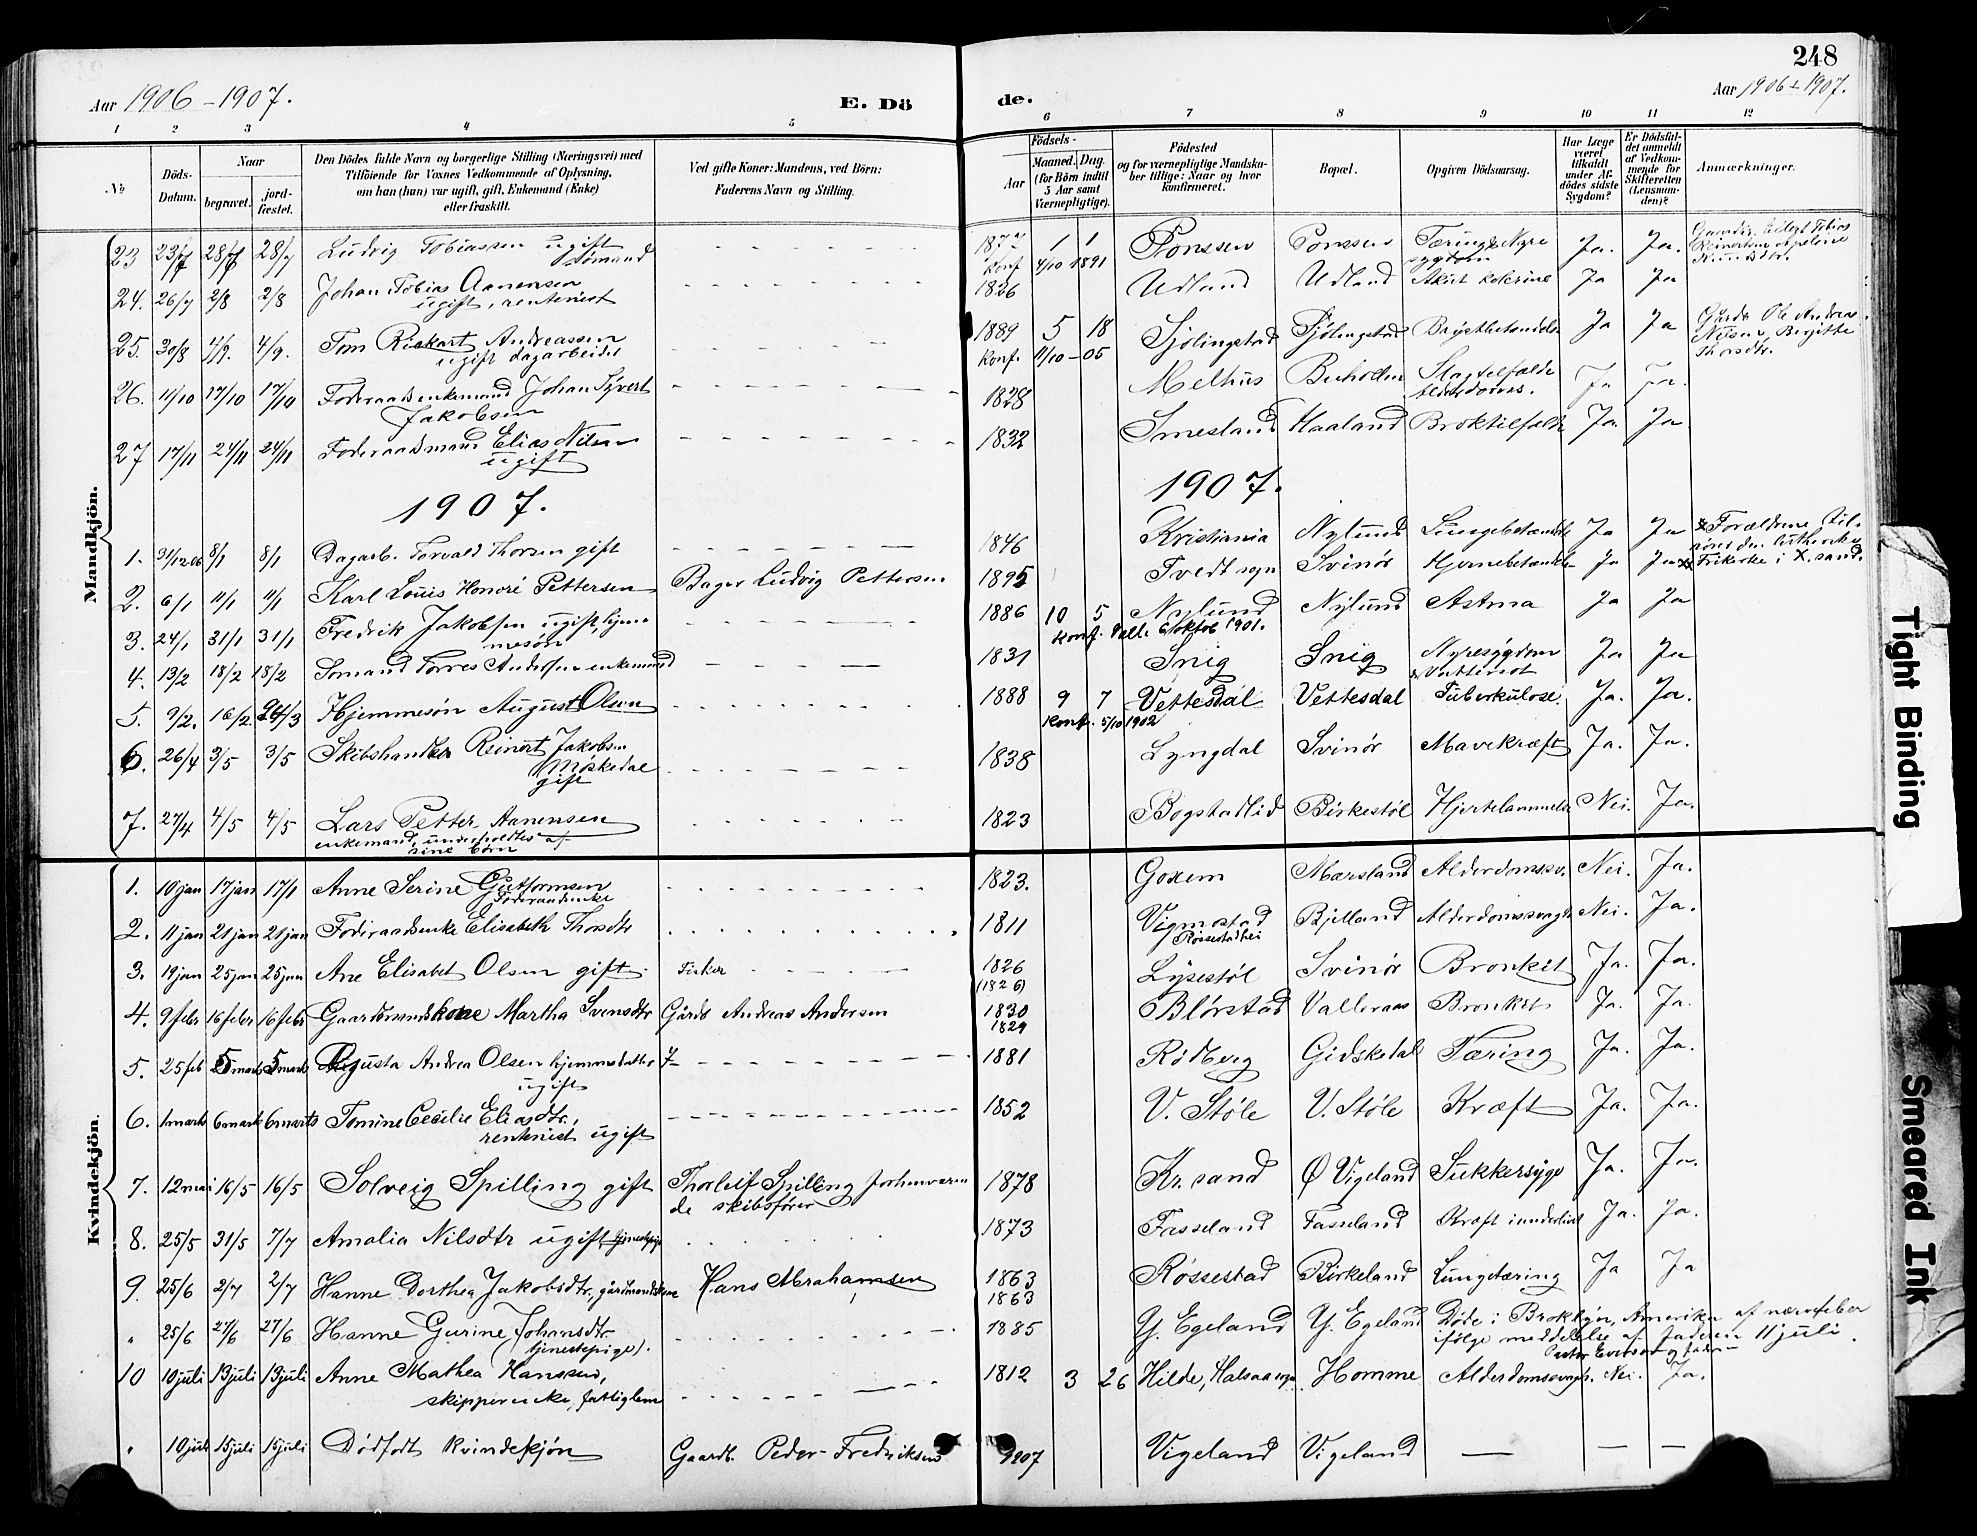 248
Aar 1906 - 1907. E. Dö
de. Aar 1906 - 1907.
1 2 3 4 5 6 7 8 9 10 11 12
№ Döds-Datum. Naar begravet. jord-fæstet.
Den Dödes fulde Navn og borgerlige Stilling (Næringsvei) med
Tilföiende for Voxnes Vedkommende af Oplysning,
om han (hun) var ugift, gift, Enkemand (Enke)
eller fraskilt.
Ved gifte Koner: Mandens, ved Börn:
Faderens Navn og Stilling.
Födsels-
Aar Maaned. Dag.
(for Börn indtil
5 Aar samt
Værnepligtige).
Födested
og for værnepligtige Mandska-
ber tillige: Naar og hvor
konfirmeret.
Bopæl.
Opgiven Dödsaarsag.
Har Læge
været
tilkaldt
under Af-
dödes sidste
Sygdom?
Er Dödsfal-
det anmeldt
af Vedkom-
mende for
Skifteretten
(Lensman-
den)?
Anmærkninger.
Mandkjön.
23 23/7 28/7 28/7 Ludvig Tobiassen ugift
sømand
1877 1 1 Ponssen Ponssen Tæring & Nyre
sygdom Ja. Ja.
Konf 4/10 1891
24. 26/7 2/8 2/8 Johan Tobias Aanensen
ugift, rentenist
1826 Udland Udland Akut kolerine Ja Ja
25. 30/8 4/9. 4/9. Tom Rickart Andreassen
ugift dagarbeider
1889 5 18 Sjölingstad Sjölingstad Brystbetændelse Ja Ja Gårdb Ole Andreas
Nilsen, Birgitte
Thorsdtr.
Konf. 11/10 - 05
26. 11/10 17/10 17/10 Foderaadsenkemand Johan Syvert
Jakobsen
1828 Melhus Buholm Slagtilfælde
Ja Ja.
27 17/11 24/11 24/11 Foderaadsmand Elias Nilsen
ugift
1832 Smesland Haaland Broktilfælde Ja Ja
1907. 1907.
1. 31/12 06 8/1 8/1 Dagarb. Torvald Thorsen gift
1846 Kristiania Nylund Lungebetændelse Ja Ja
2. 6/1 11/1 11/1 Karl Louis Honoré Pettersen Bager Ludvig Pettersen
1895 Tvedt sogn Svinör Hjernebetændelse Ja Ja x
x Forældrene til-
hörer den lutherske
Frikirke i X.sand.
3. 24/1 31/1 31/1 Fredrik Jakobsen ugift, hjem-
mesön
1886 10 5 Nylund Nylund Astma Ja Ja
Konf. Valle 6 oktob 1901.
4. 13/2 18/2 18/2 Sømand Torres Andersen enkemand
1831 Snig Snig Nyresygdom
& Vattersot Ja Ja
5. 9/2. 16/2. 24/3 Hjemmesön August Olsen
1888 9 7 Vettesdal Vettesdal Tuberkulose. Ja. Ja.
Konf. 5/10 1902
6. 26/4 3/5 3/5 Skibshandler Reinert Jakobsen
Möskedal
gift
1838 Lyngdal Svinör Mavekræft Ja. Ja.
7. 27/4 4/5 4/5 Lars Petter Aanensen
enkemand, underholdtes af
sine börn
1823 Bogstadlid Birkestöl Hjertelammelse Nei. Ja.
Kvindekjön.
1. 10 jan 17 jan 17/1 Anne Serine Guttormsen
Foderaadsenke
1823. Goxem Mærsland Alderdomssv. Nei. Ja.
2. 11 jan 21 jan 21 jan Foderaadsenke Elisabeth Thorsdtr
1811 Vigmostad
Røssestadhei Bjelland Alderdomssvagh. Nei. Ja.
3. 19 jan 25 jan 25 jan Ane Elisabet Olsen gift Fisker
1826
(1826) Lysestöl Svinör Bronkit Ja. Ja.
4. 9 febr 16 febr 16 febr Gaardmandskone Martha Svensdtr Gårdb Andreas Andersen
1830
1829 Blörstad Valleraas Bronkit Ja. Ja.
5. 25 feb 5 marts 5 marts Augusta Andrea Olsen hjemmedatter
ugift
1881 Rödberg Gidskedal Tæring Ja. Ja.
6. 1 marts 6 marts 6 marts Tomine Cecilie Eliasdtr.,
rentenist ugift
1852 V. Støle V. Støle Kræft Ja. Ja.
7. 12 mai 16/5 16/5 Solveig Spilling gift Thorleif Spilling forhenværen
de skibsfører
1878 Kr. sand Ø Vigeland Sukkersyge Ja. Ja.
8. 25/5 31/5 7/7 Amalia Nilsdtr ugift tjenestepige
1873 Fasseland Fasseland Kræft i underlivet Ja. Ja.
9. 25/6 2/7 2/7 Hanne Dorthea Jakobsdtr., gårdmandskone Hans Abrahamsen
1863
1863 Røssestad Birkeland Lungetæring Ja Ja
" 25/6 27/6 27/6 Hanne Gurine Johansdtr
(tjenestepige).
1885 Y. Egeland Y. Egeland Døde i Brokkyn, Amerika af nervefeber
ifølge meddelelse af faderen 11 juli.
10 10 juli 13 juli 13 juli Anne Mathea Hanssen,
skipperenke, fattiglem
1812 3 26 Hilde, Halsaa sogn Homme Alderdomssvagh. Nei. Ja.
" 10 juli 15 juli 15 juli Dødfødt kvindekjøn Gaardb. Peder Fredriksen
1907 Vigeland Vigeland — — —
Tight Binding
Smeared Ink